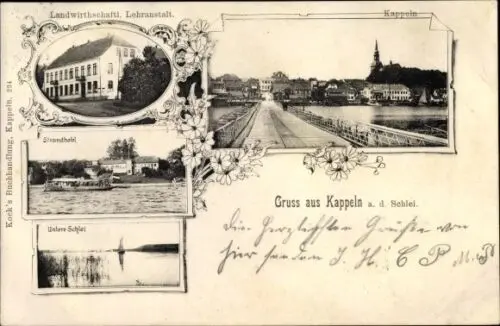 Landwirthschaftl. Lehranstalt.
Kappeln
Strandhotel
Untere Schlei
Koch's Buchhandlung, Kappeln. 294
Gruss aus Kappeln a. d. Schlei.
Die herzlichsten Grüße von
hier senden